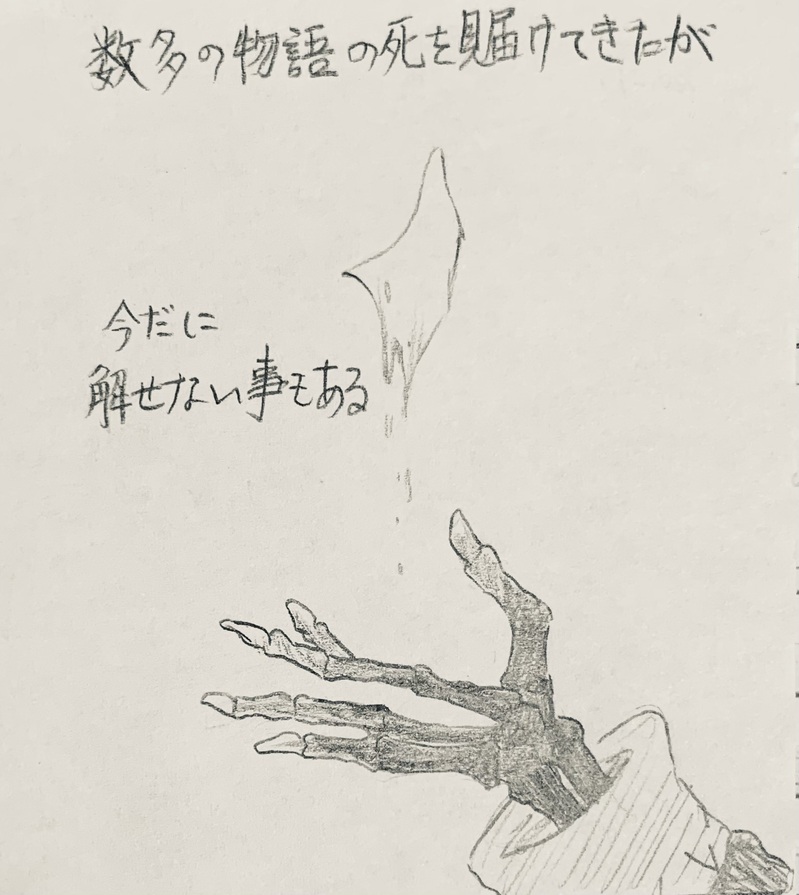 数多の物語の死を見届けてきたが
今だに
解せない事もある